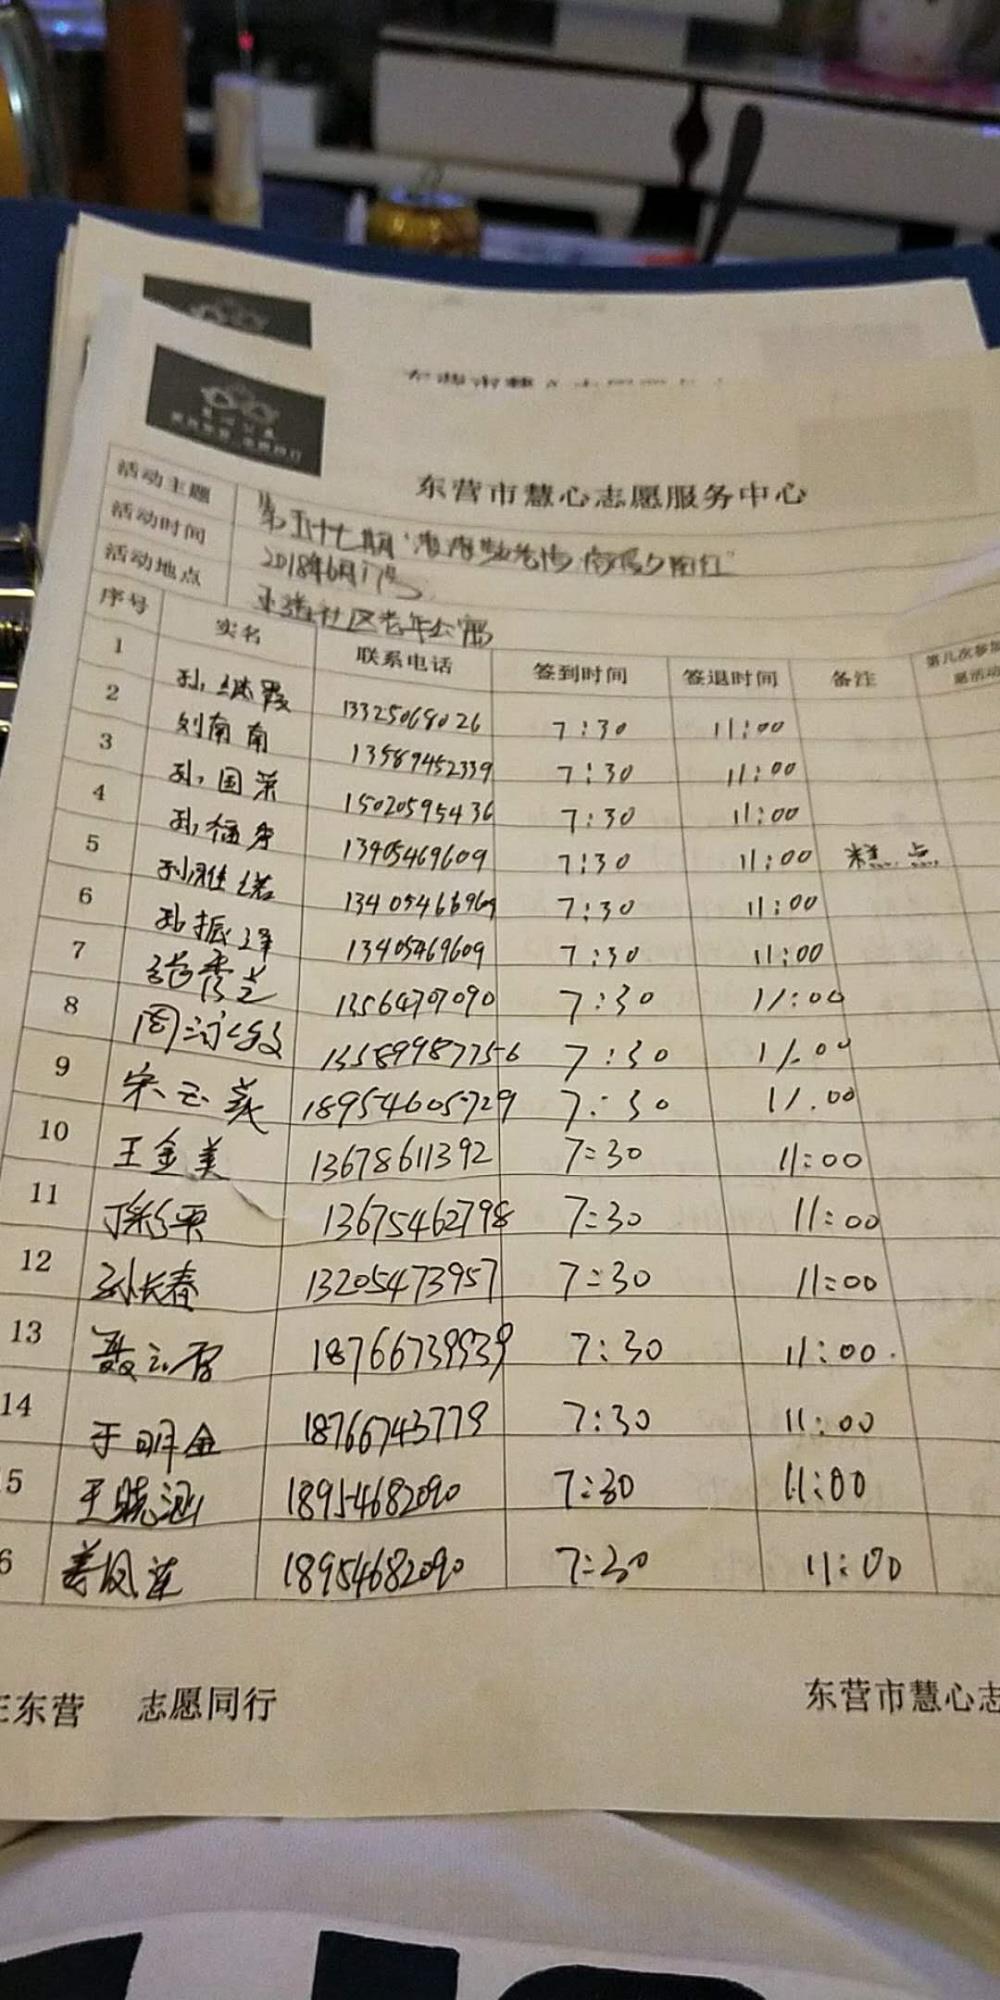 东营市慧心志愿服务中心
活动主题 第五十七期
活动时间 2018年6月17号
活动地点 社区老年公寓
序号 实名 联系电话 签到时间 签退时间 备注 第几次参加
愿活动
1 孙继霞 13325068026 7:30 11:00
2 刘南南 13589452339 7:30 11:00
3 孙国荣 15020595436 7:30 11:00
4 孙 13405469609 7:30 11:00 糕点
5 13405466969 7:30 11:00
6 孙振 13405469609 7:30 11:00
7 秀芝 13564707090 7:30 11:00
8 周 13589987756 7:30 11:00
9 宋玉 18954605729 7:30 11:00
10 王金美 13678611392 7:30 11:00
11 平 13675462798 7:30 11:00
12 孙长春 13205473957 7:30 11:00
13 聂云 18766739939 7:30 11:00
14 于明金 18766743779 7:30 11:00
5 王晓涵 18954682090 7:30 11:00
6 姜凤莲 18954682090 7:30 11:00
东营 志愿同行
东营市慧心志